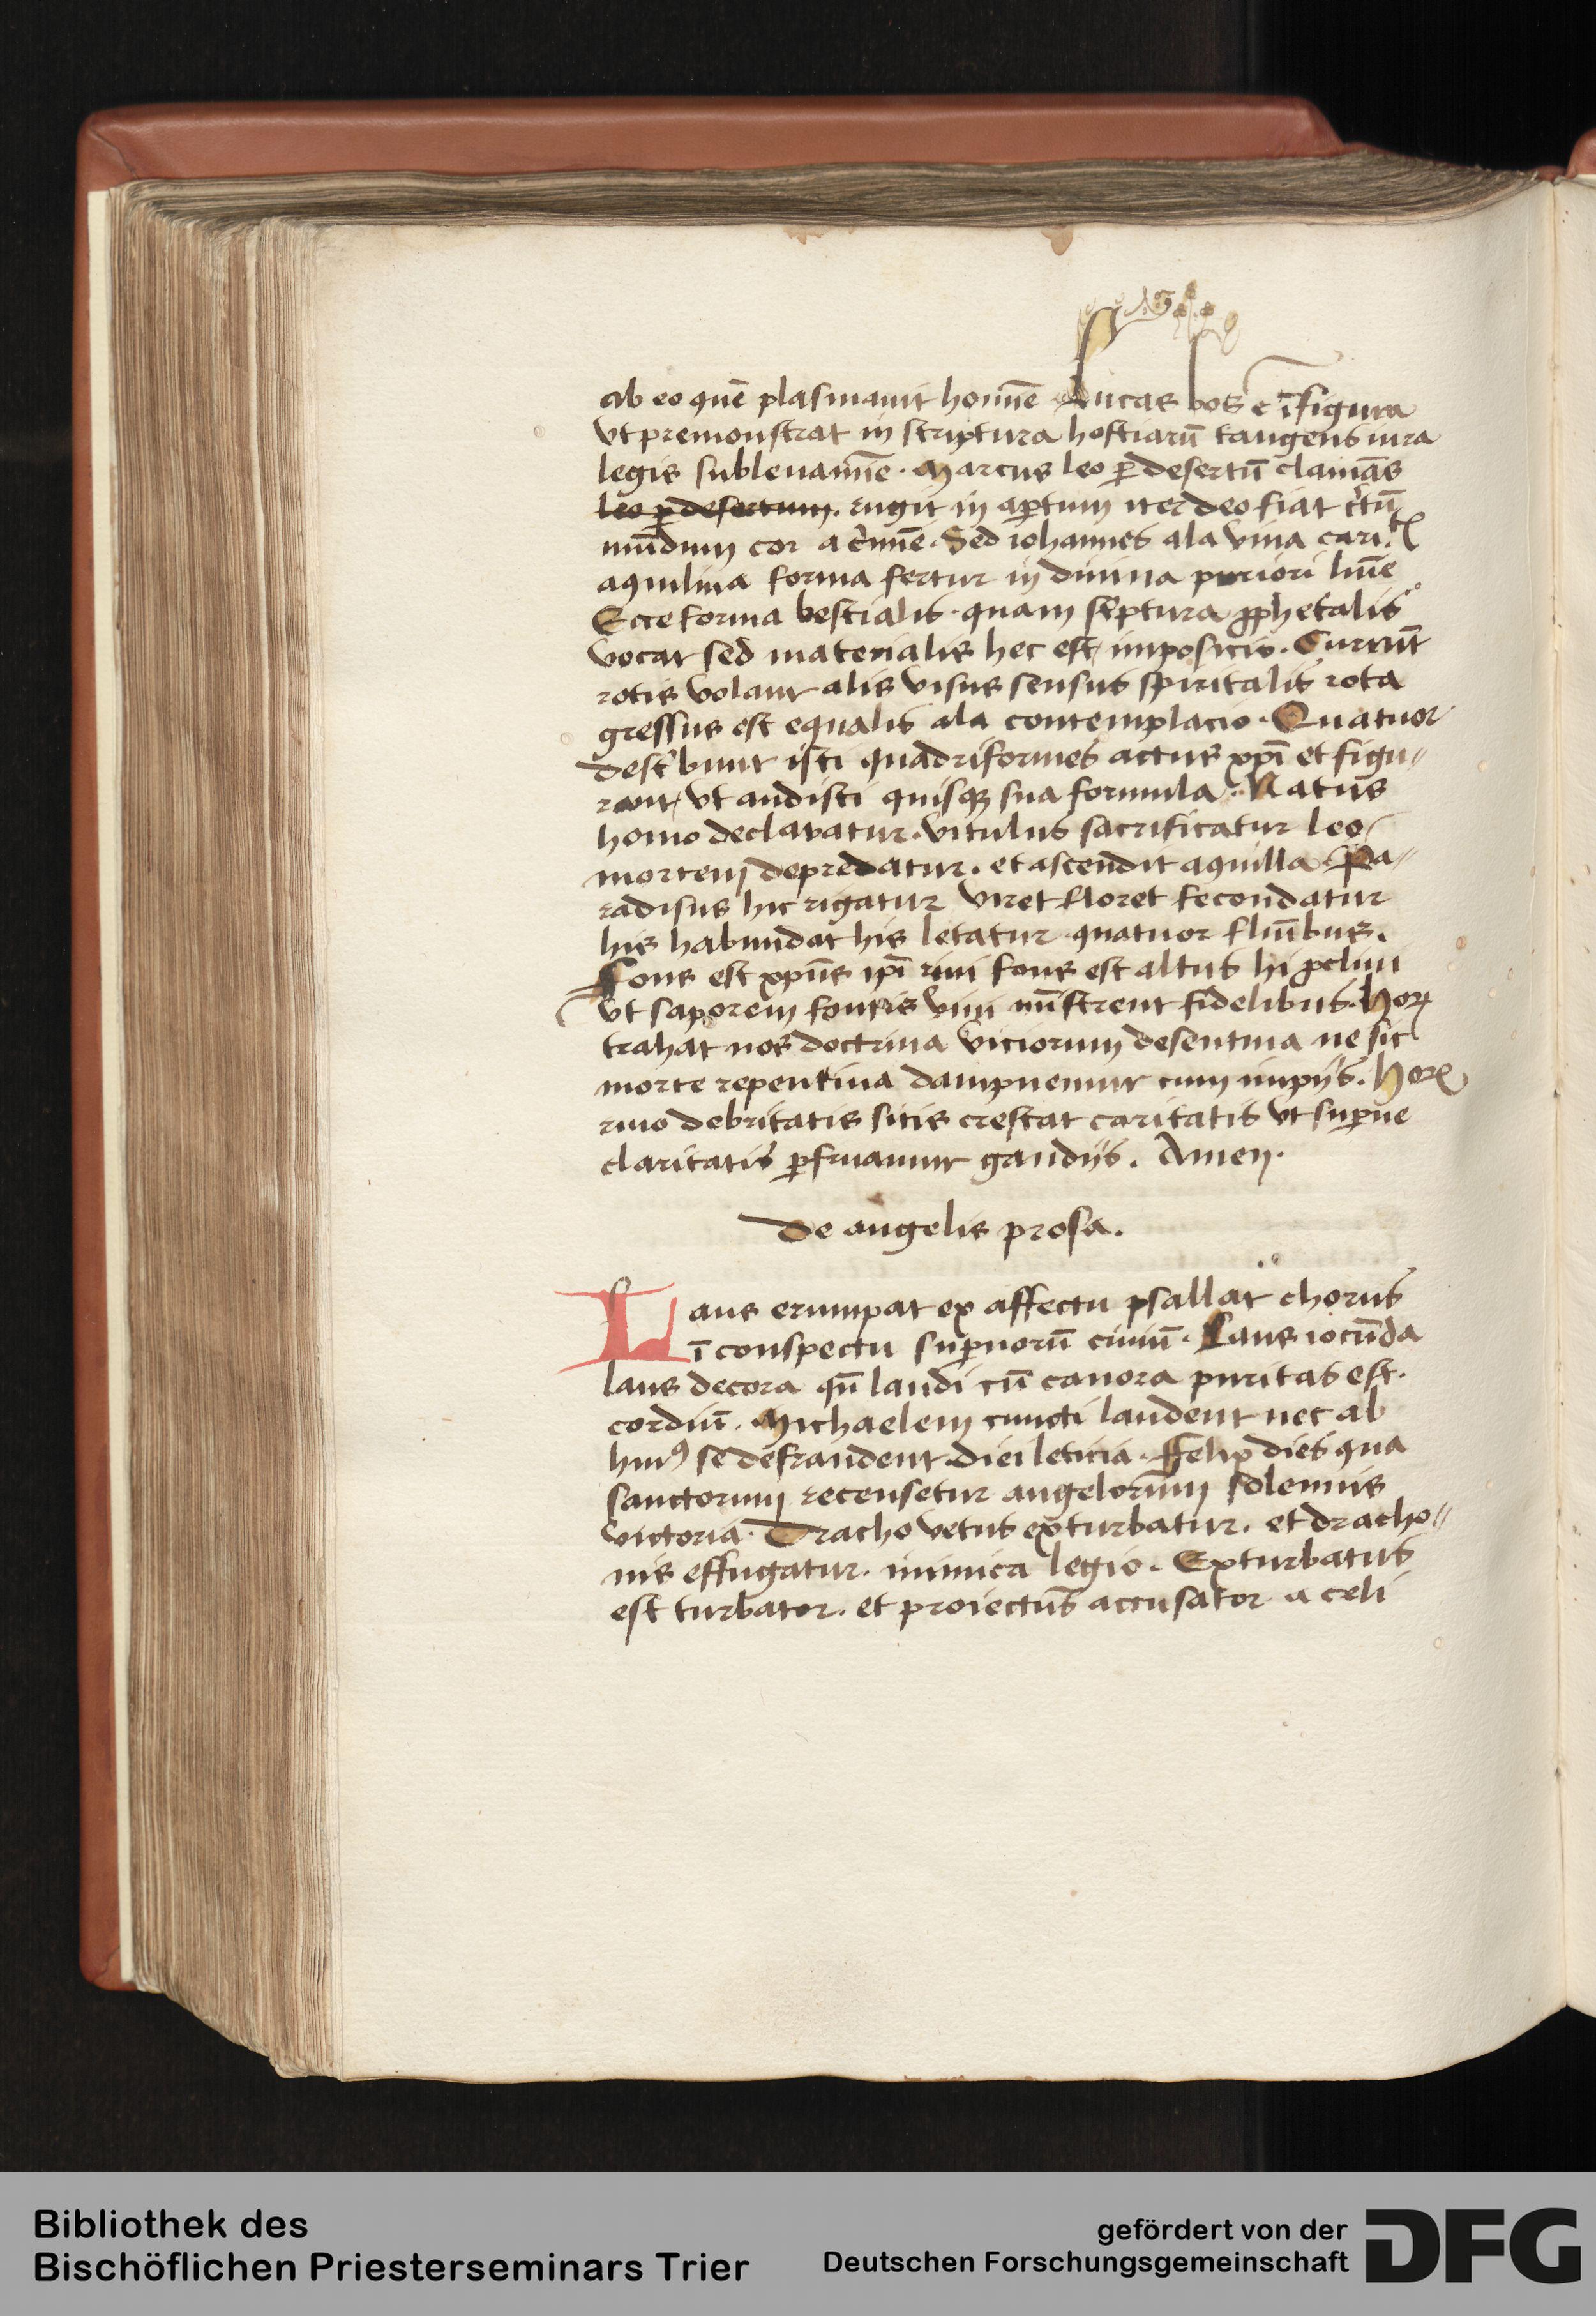 ab eo quē plasmauit homīe Lucas bos ē ī figura
vt premonstrat in scriptura hostiarū tangens iura
legis subleuamīe. Marcus leo ꝑ desertū clamās
leo ꝑ desertum. rugit in aꝑtum iter deo fiat c̄tū
mūdum cor a c̓mīe. Sed iohannes ala bina carit
aquilina forma fertur in diuina puriori lumīe
Ecce forma bestialis quam sc̓ptura ꝓphetalis
vocat sed materialis hec est imposicio. Currūt
rotis volant alis visus sensus spiritalis rota
gressus est equalis ala contemplacio. Quatuor
desc̓bunt isti quadriformes actus xp̄i et figu〃
rant vt audisti quisqꝫ sua formula. Natus
homo declaratur. vitulus sacrificatur leo
mortem depredatur. et ascendit aquilla. Pa〃
radisus hic rigatur viret floret fecondatur
his habundat his letatur quatuor fluībus.
Fons est xp̄us ip̄i riui fons est altus hi ꝓcliui
vt saporem fontis viui mīstrent fidelibus. Horꝝ
trahat nos doctrina viciorum de sentina ne sic
morte repentina dampnemur cum impijs. Horꝝ
riuo debritatis sitis crescat caritatis vt suꝑne
claritatis ꝑfruamur gaudijs. Amen.
De angelis prosa.
Laus erumpat ex affectu psallat chorus
ī conspectu suꝑnorū ciuiū. Laus iocūda
laus decora qn̄ laudi cū canora puritas est.
cordiū. Michaelem cuncti laudent nec ab
huiꝰ se defraudent diei leticia. Ffelix dies qua
sanctorum recensetur angelorum solemnis
victoria. Dracho vetus exturbatur. et dracho〃
nis effugatur. inimica legio. Exturbatus
est turbator. et proiectus accusator a celi
Bibliothek des
Bischöflichen Priesterseminars Trier
gefördert von der
Deutschen Forschungsgemeinschaft
DFG